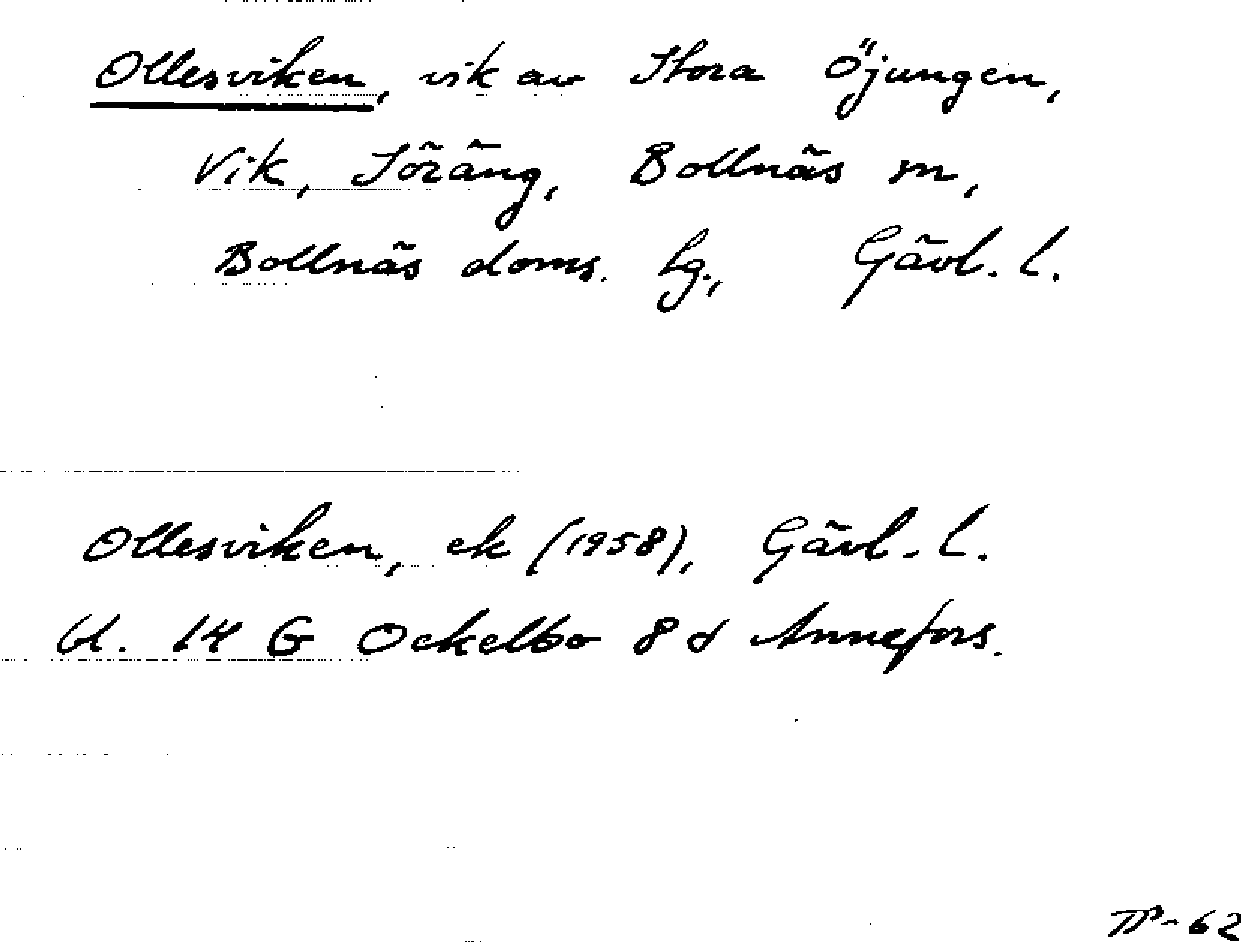 Ollesviken, vik av Stora Öjungen,
Vik, Söräng, Bollnäs sn,
Bollnäs doms. hg., Gävl. l.
Ollesviken, ek (1958), Gävl. l.
bl. 14 G Ockelbo 8 d Annefors.
TP-62